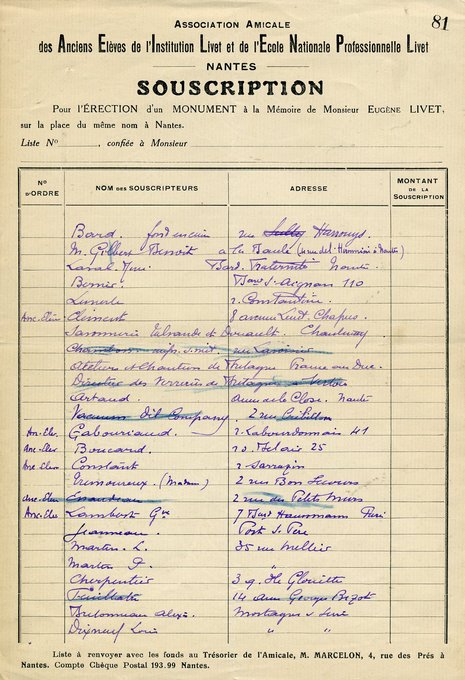 81
ASSOCIATION AMICALE
des Anciens Elèves de l'Institution Livet et de l'Ecole Nationale Professionnelle Livet
NANTES
SOUSCRIPTION
Pour l'ÉRECTION d'un MONUMENT à la Mémoire de Monsieur EUGÈNE LIVET,
sur la place du même nom à Nantes.
Liste No , confiée à Monsieur
No D'ORDRE NOM DES SOUSCRIPTEURS ADRESSE MONTANT DE LA SOUSCRIPTION
Bard. rue Harrouys
M. Gilbert Benoit a la Baule
Laval Bard Fraternité Nante
Bernier St Aignan 110
r. Constantine
Anc. Elev Clément 8 avenue Chapus
Savonnerie Talvande et Douault. Chantenay
Chambon
Ateliers et Chantiers de Bretagne Prairie au Duc
Directeur des Terrains de Bretagne a Vertou
Artaud. Nante
Vacuum Oil Company. 2 rue Crébillon
Anc. Elev Gabouriaud r. Labourdonnais 41
Anc. Elev Boucard r. o. Belair 25
Anc. Elev Constant r. Sarrazin
(Madame) 2 rue Bon Secours
Anc. Elev 2 rue des Petits Murs
Anc. Elev Lambert Gve 7 Bard Haussmann Paris
Jeanneau. Port St Père
Martin L. 35 rue Mellier
Martin P. "
Charpentier 3 q. Ile Gloriette
14 rue George Bizot
Bretonneau Alexis Mortagne s Sevre
Louis " "
Liste à renvoyer avec les fonds au Trésorier de l'Amicale, M. MARCELON, 4, rue des Prés à
Nantes. Compte Chèque Postal 193.99 Nantes.